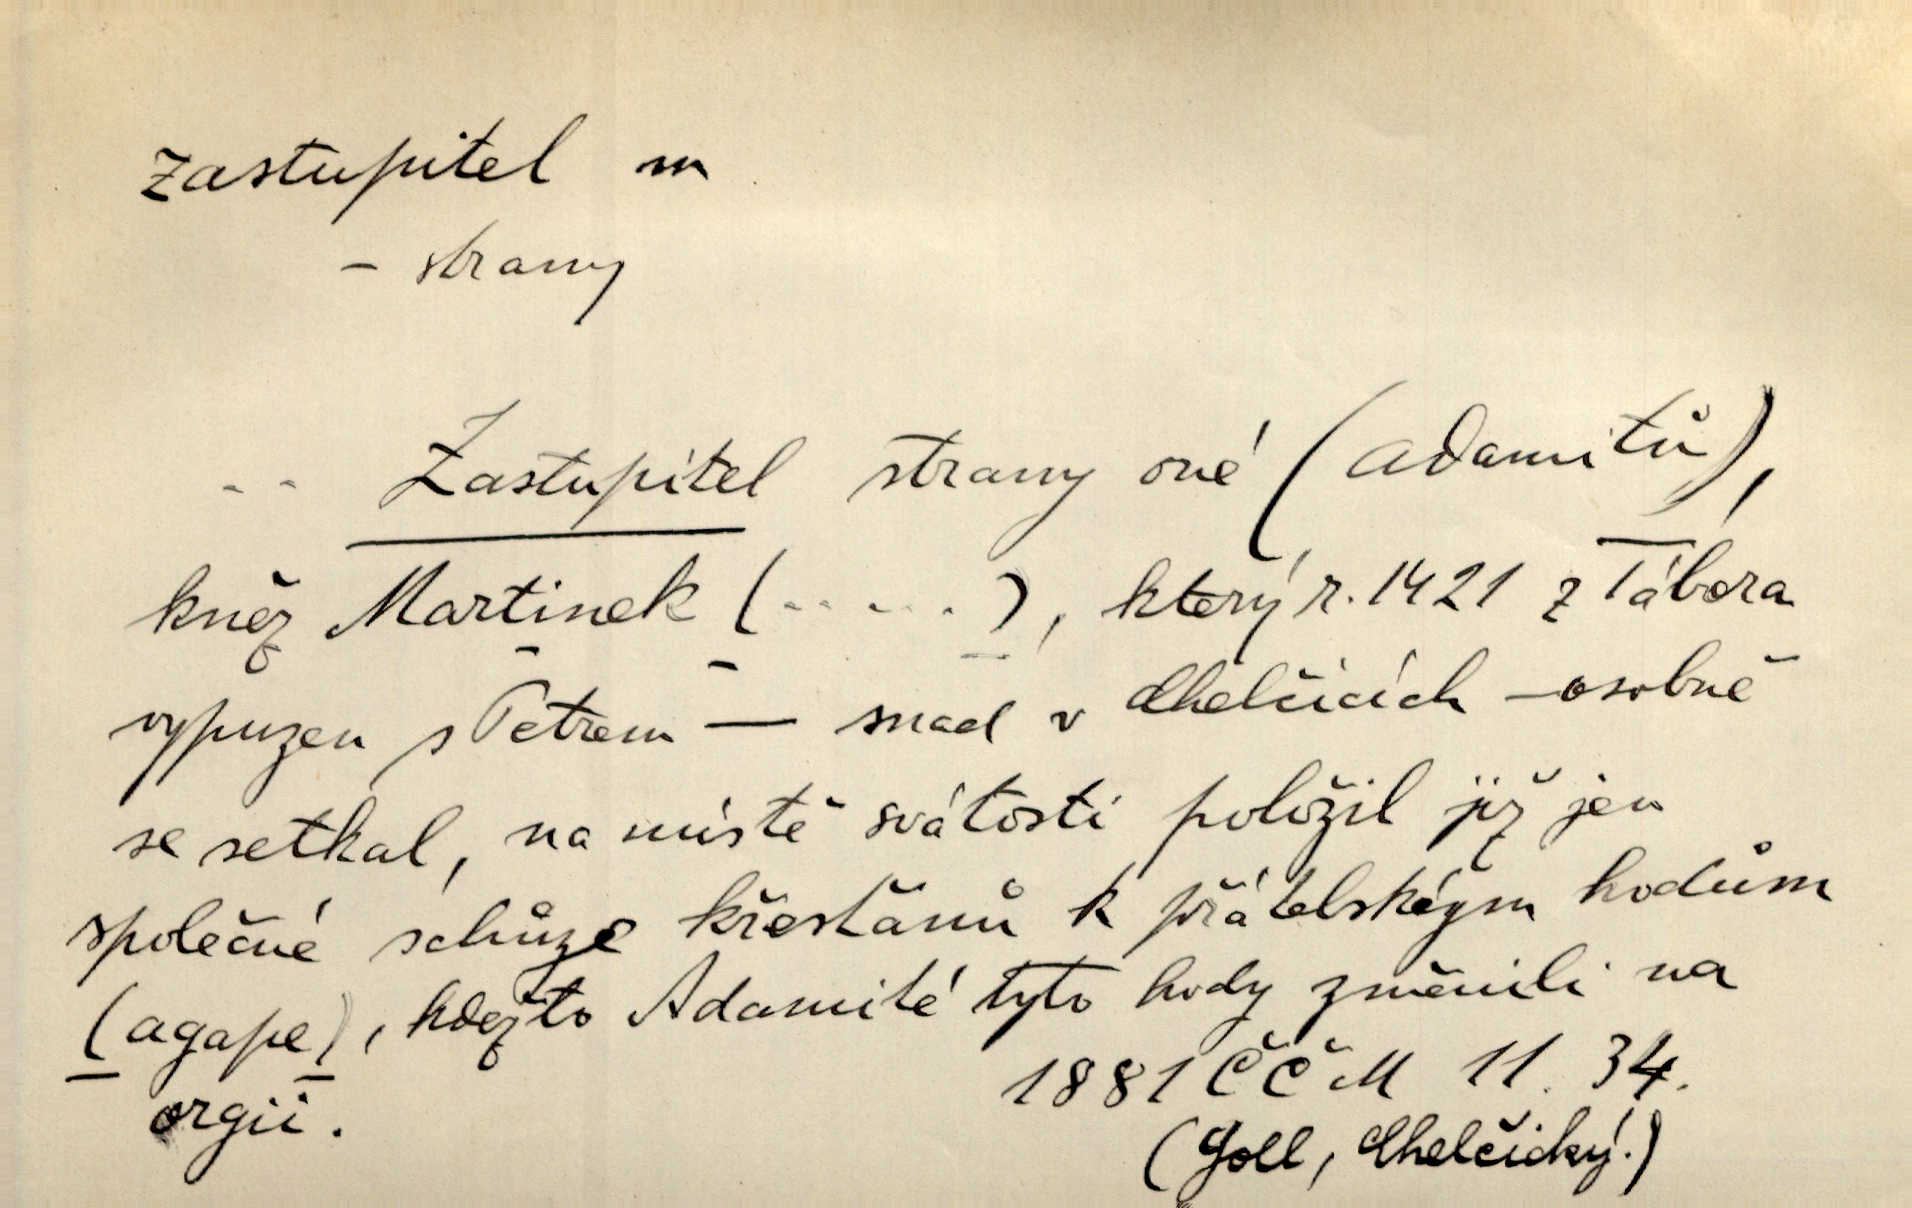 zastupitel m
– strany
.. Zastupitel strany oné (Adamitů),
kněz Martinek (.....), který r. 1421 z Tábora
vypuzen s Petrem — snad v Chelčicích – osobně
se setkal, na místě svátosti položil již jen
společné schůze křesťanů k přátelským hodům
(agape), kdežto Adamité tyto hody změnili na
orgii.
1881 ČČM 11. 34.
(Goll, Chelčický.)